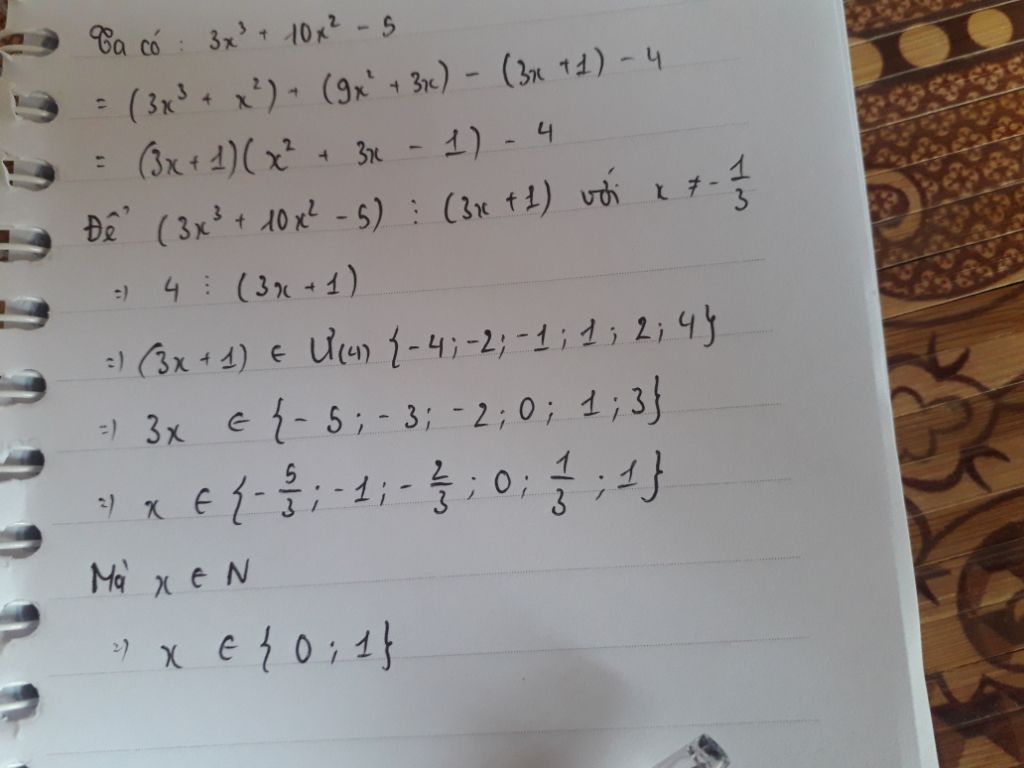 Ta có : 3x³ + 10x² - 5
= (3x³ + x²) + (9x² + 3x) - (3x + 1) - 4
= (3x + 1)(x² + 3x - 1) - 4
Để (3x³ + 10x² - 5) ⋮ (3x + 1) với x ≠ - 1/3
=) 4 ⋮ (3x + 1)
=) (3x + 1) ∈ Ư(4) {-4; -2; -1; 1; 2; 4}
=) 3x ∈ {-5; -3; -2; 0; 1; 3}
=) x ∈ {-5/3; -1; -2/3; 0; 1/3; 1}
Mà x ∈ N
=) x ∈ {0; 1}